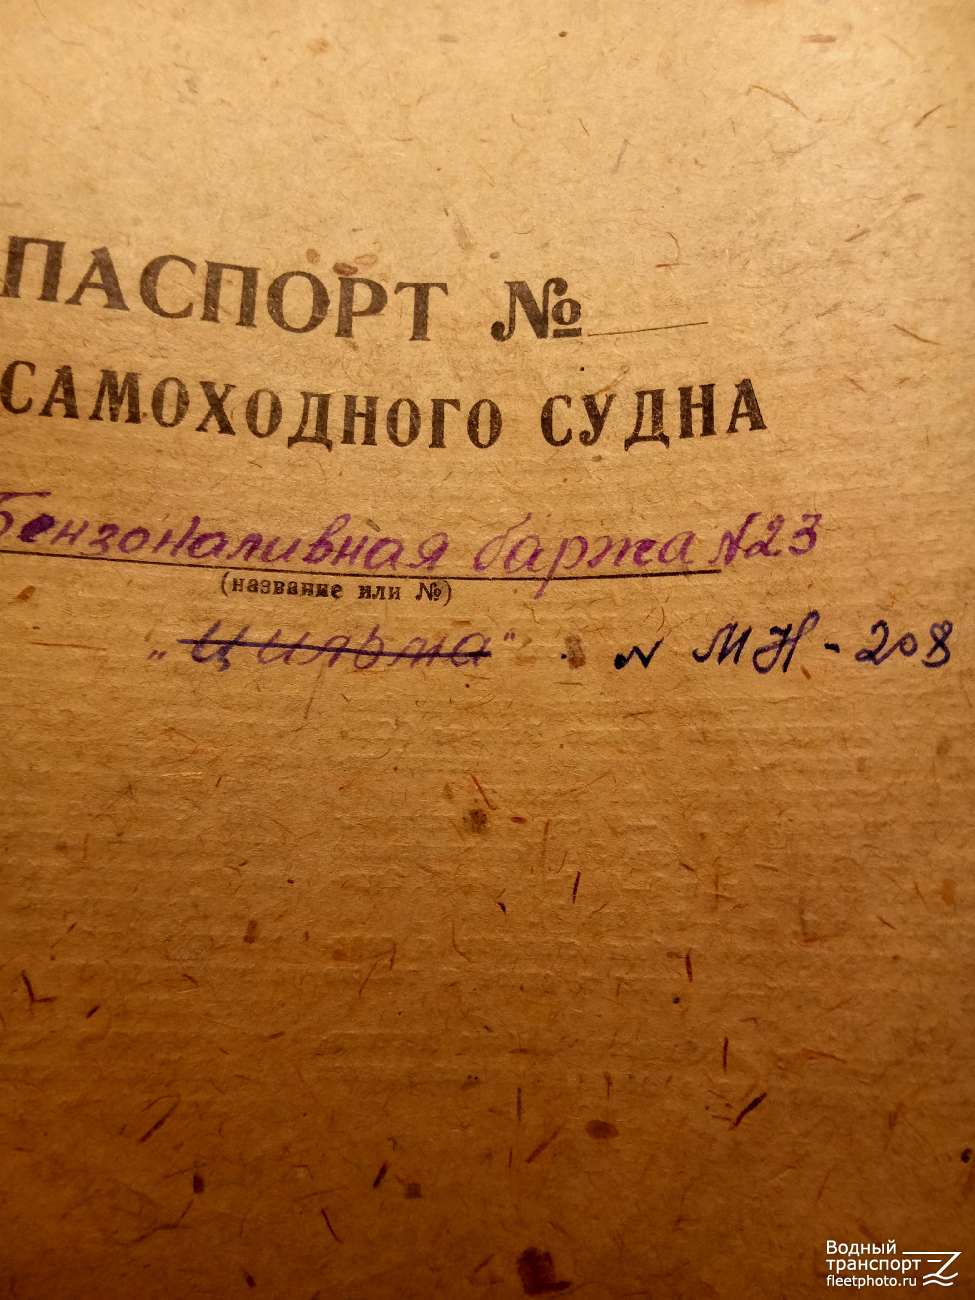 ПАСПОРТ №
САМОХОДНОГО СУДНА
Бензоналивная баржа N23
(название или №)
„Цильма" N МН-208
Водный
транспорт
fleetphoto.ru